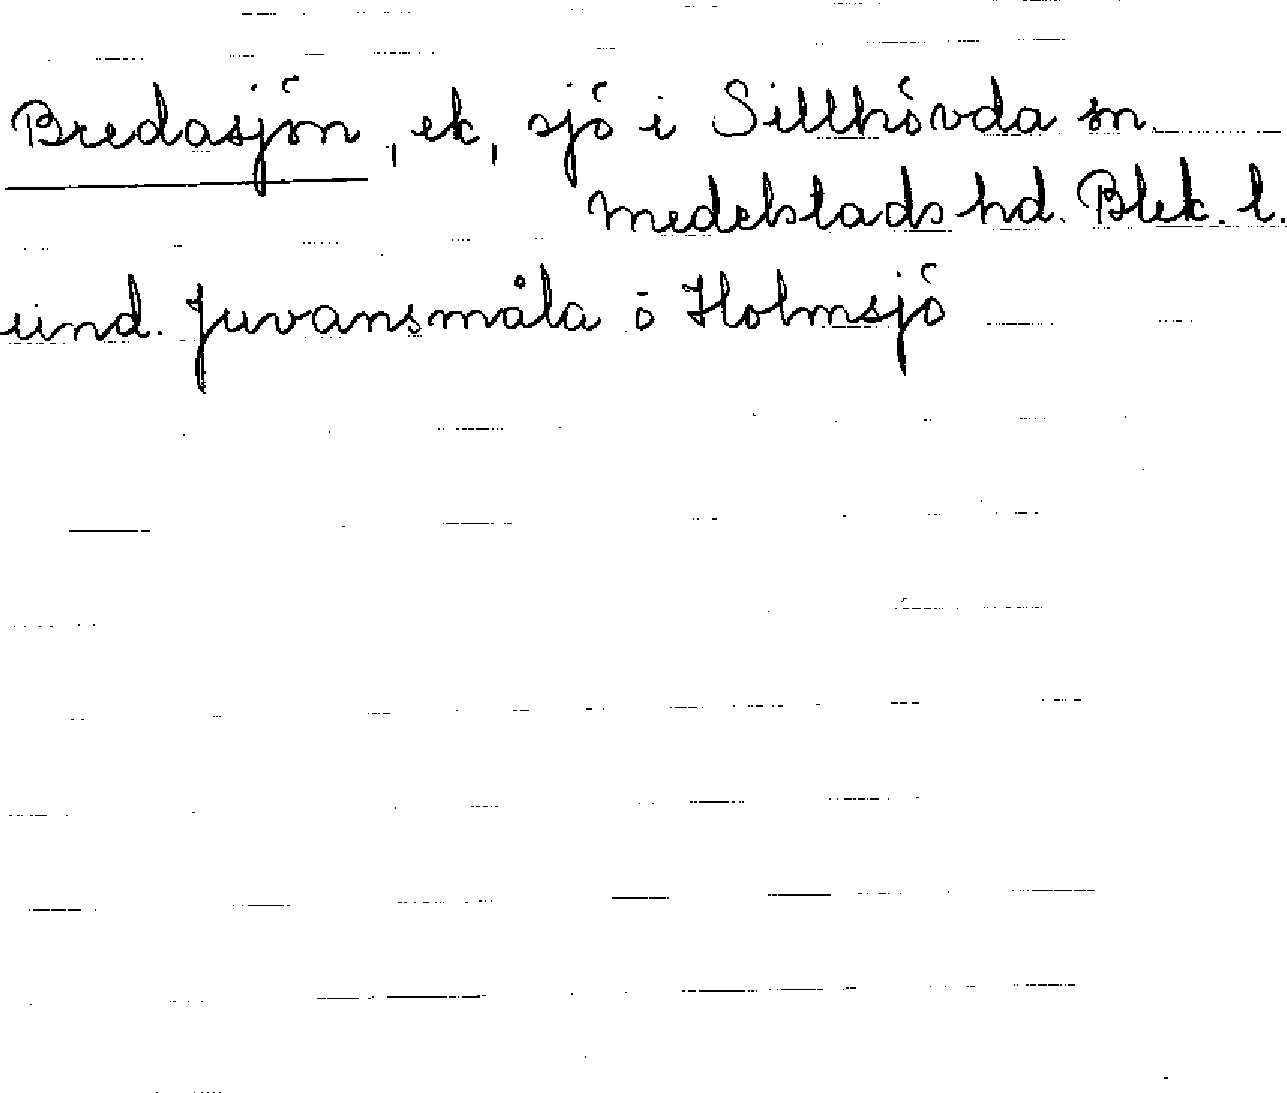 Bredasjön, ek, sjö i Sillhövda sn.
Medelstads hd. Blek. l.
und. Juvansmåla ö Holmsjö